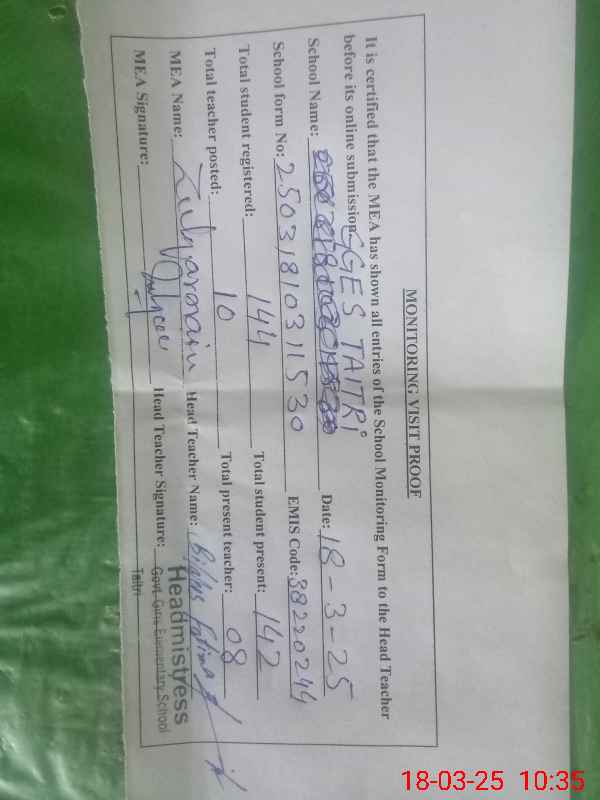 MONITORING VISIT PROOF
It is certified that the MEA has shown all entries of the School Monitoring Form to the Head Teacher
before its online submission.
School Name: GGES TAITRI Date: 18-3-25
School form No: 25031810311530 EMIS Code: 38220244
Total student registered: 144 Total student present: 142
Total teacher posted: 10 Total present teacher: 08
MEA Name: Head Teacher Name: Fatima
MEA Signature: Head Teacher Signature:
Headmistress
Govt. Girls Elementary School
Taitri
18-03-25 10:35